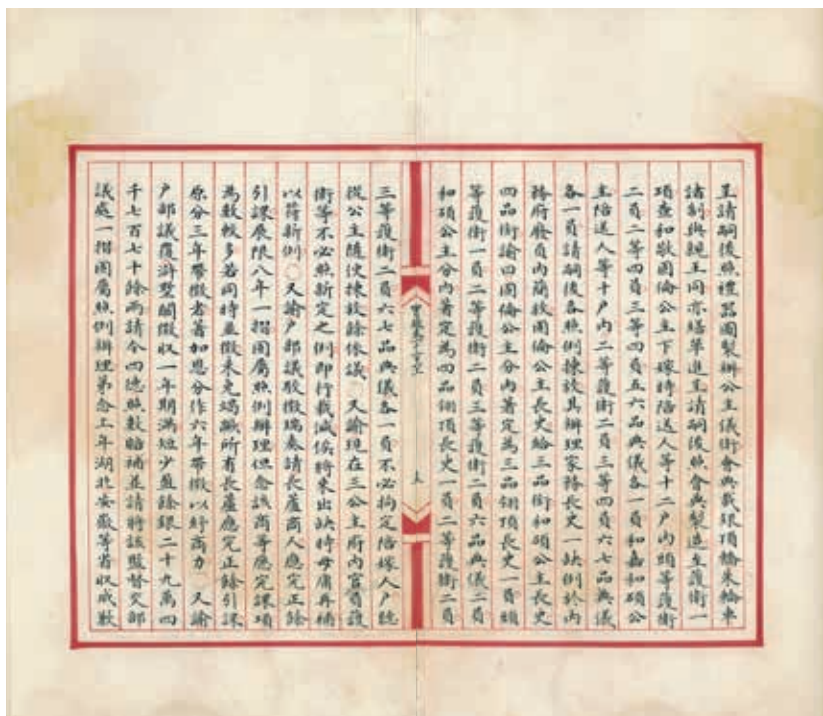 呈請嗣後照禮器圖製辦公主儀衛會典載銀頂轎朱輪車
諸制與親王同亦繕單進呈請嗣後照會典製造至護衛一
項查和敬固倫公主下嫁時陪送人等十二戶內頭等護衛
二員二等四員三等四員五六品典儀各一員和嘉和碩公
主陪送人等十戶內二等護衛二員三等四員六七品典儀
各一員請嗣後各照例揀放其辦理家務長史一缺例於內
務府廢員內簡放固倫公主長史給三品銜和碩公主長史
四品銜諭曰固倫公主分內著定為三品翎頂長史一員頭
等護衛一員二等護衛二員三等護衛二員六品典儀二員
和碩公主分內著定為四品翎頂長史一員二等護衛二員
三等護衛二員六七品典儀各一員不必拘定陪嫁人戶總
從公主隨便揀放餘依議○又諭現在三公主府內官員護
衛等不必照新定之例即行裁減俟將來出缺時毋庸再補
以符新例○又諭戶部議駁徵瑞奏請長蘆商人應完正餘
引課展限八年一摺固屬照例辦理但念該商等應完課項
為數較多若同時並徵未免竭蹶所有長蘆應完正餘引課
原分三年帶徵者著加恩分作六年帶徵以紓商力○又諭
戶部議覆滸墅關徵收一年期滿短少盈餘銀二十九萬四
千七百七十餘兩請令四德照數賠補並請將該監督交部
議處一摺固屬照例辦理第念上年湖北安徽等省收成歉